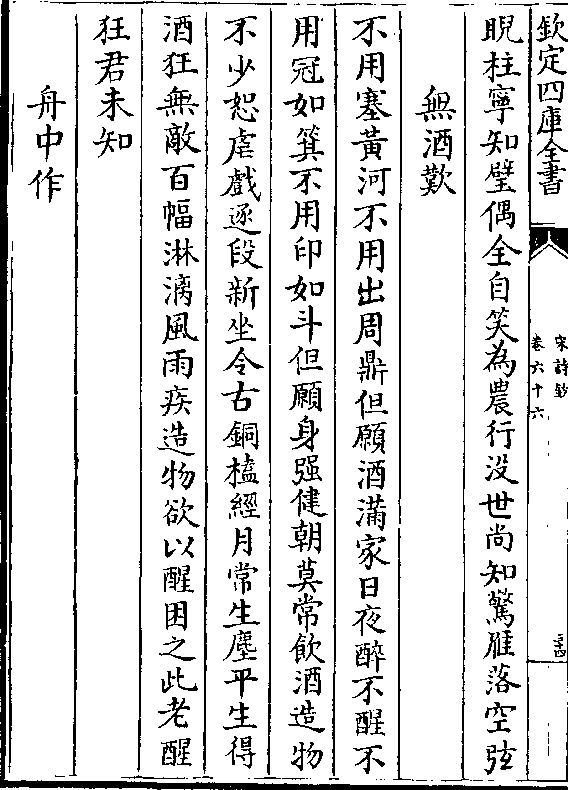 欽定四庫全書
宋詩鈔
卷六十六
三四
睨柱寧知璧偶全自笑為農行没世尚知驚雁落空弦
無酒歎
不用塞黄河不用出周鼎但願酒滿家日夜醉不醒不
用冠如箕不用印如斗但願身强健朝莫常飲酒造物
不少恕虐戲逐段新坐令古銅榼經月常生塵平生得
酒狂無敵百幅淋漓風雨疾造物欲以醒困之此老醒
狂君未知
舟中作